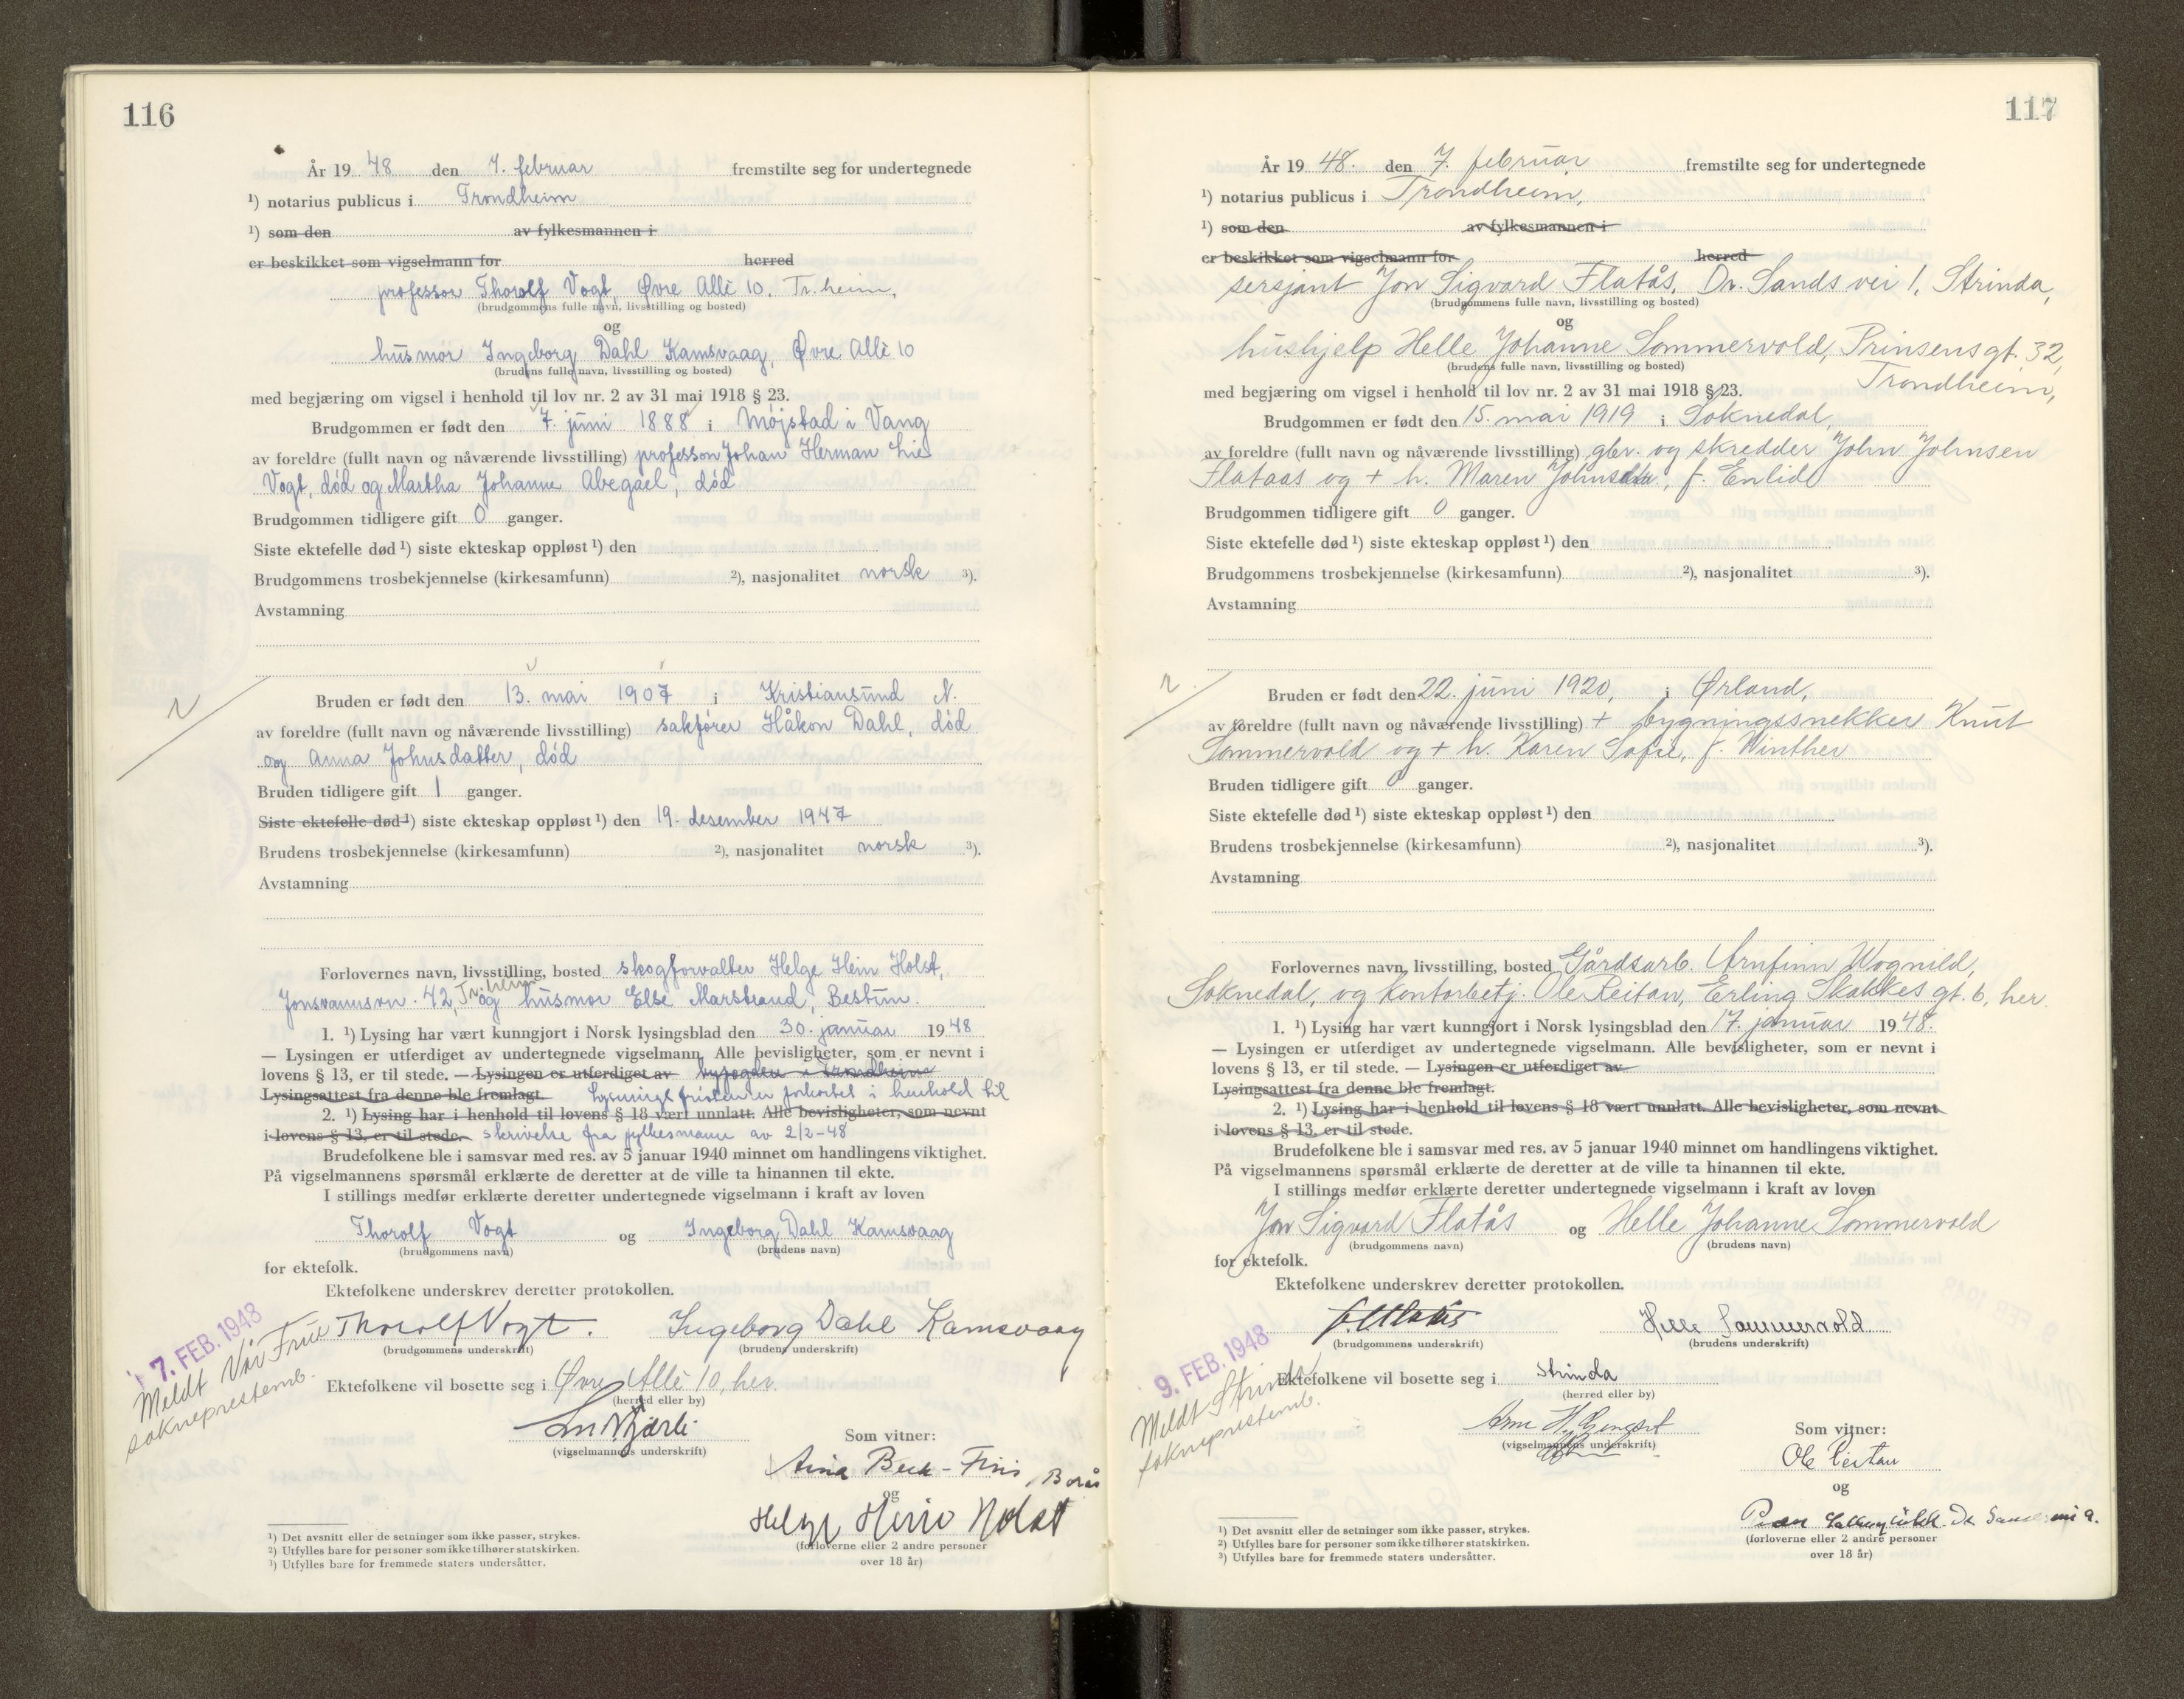 116
År 19 48 den 7. februar fremstilte seg for undertegnede
¹) notarius publicus i Trondheim
¹) som den av fylkesmannen i
er beskikket som vigselmann for herred
professor Thorolf Vogt, Øvre Allè 10, Tr.heim,
(brudgommens fulle navn, livsstilling og bosted)
og
husmor Ingeborg Dahl Kamsvaag, Øvre Allè 10
(brudens fulle navn, livsstilling og bosted)
med begjæring om vigsel i henhold til lov nr. 2 av 31 mai 1918 § 23.
Brudgommen er født den 7. juni 1888 i Møjstad i Vang
av foreldre (fullt navn og nåværende livsstilling) professor Johan Herman Lie
Vogt, død og Martha Johanne Abegael, død
Brudgommen tidligere gift 0 ganger.
Siste ektefelle død ¹) siste ekteskap oppløst ¹) den
Brudgommens trosbekjennelse (kirkesamfunn) ²), nasjonalitet norsk ³).
Avstamning
Bruden er født den 13. mai 1907 i Kristiansund N.
av foreldre (fullt navn og nåværende livsstilling) sakfører Håkon Dahl, død
og Anna Johnsdatter, død
Bruden tidligere gift 1 ganger.
Siste ektefelle død ¹) siste ekteskap oppløst ¹) den 19. desember 1947
Brudens trosbekjennelse (kirkesamfunn) ²), nasjonalitet norsk ³).
Avstamning
Forlovernes navn, livsstilling, bosted skogforvalter Helge Hein Holst,
Jonsvannsvn. 42, Tr.heim og husmor Else Marstrand, Bestum.
1. ¹) Lysing har vært kunngjort i Norsk lysingsblad den 30. januar 19 48
— Lysingen er utferdiget av undertegnede vigselmann. Alle bevisligheter, som er nevnt i
lovens § 13, er til stede. — Lysingen er utferdiget av byfogden i Trondheim
Lysingsattest fra denne ble fremlagt. Lysningsfristen er forkortet i henhold til
2. ¹) Lysing har i henhold til lovens § 18 vært unnlatt. Alle bevisligheter, som nevnt
i lovens § 13, er til stede. skrivelse fra fylkesmann av 2/2-48
Brudefolkene ble i samsvar med res. av 5 januar 1940 minnet om handlingens viktighet.
På vigselmannens spørsmål erklærte de deretter at de ville ta hinannen til ekte.
I stillings medfør erklærte deretter undertegnede vigselmann i kraft av loven
Thorolf Vogt og Ingeborg Dahl Kamsvaag
(brudgommens navn) (brudens navn)
for ektefolk.
Ektefolkene underskrev deretter protokollen.
Thorolf Vogt. Ingeborg Dahl Kamsvaag
(brudgommens underskrift) (brudens underskrift)
7. FEB. 1948
Meldt Vår Frue
sokneprestemb.
Ektefolkene vil bosette seg i Øvre Allè 10, her.
(herred eller by)
(vigselmannens underskrift)
Som vitner:
Beck-Friis, Borås
og
Helge Hein Holst
(forloverne eller 2 andre personer
over 18 år)
¹) Det avsnitt eller de setninger som ikke passer, strykes.
²) Utfylles bare for personer som ikke tilhører statskirken.
³) Utfylles bare for fremmede staters undersåtter.
117
År 19 48. den 7. februar fremstilte seg for undertegnede
¹) notarius publicus i Trondheim,
¹) som den av fylkesmannen i
er beskikket som vigselmann for herred
sersjant Jon Sigvard Flatås, Dr. Sands vei 1, Strinda,
(brudgommens fulle navn, livsstilling og bosted)
og
hushjelp Helle Johanne Sommervold, Prinsensgt. 32,
(brudens fulle navn, livsstilling og bosted)
Trondheim,
med begjæring om vigsel i henhold til lov nr. 2 av 31 mai 1918 § 23.
Brudgommen er født den 15. mai 1919 i Soknedal,
av foreldre (fullt navn og nåværende livsstilling) gbr. og skredder John Johnsen
Flataas og + h. Maren , f. Enlid
Brudgommen tidligere gift 0 ganger.
Siste ektefelle død ¹) siste ekteskap oppløst ¹) den
Brudgommens trosbekjennelse (kirkesamfunn) ²), nasjonalitet ³).
Avstamning
Bruden er født den 22. juni 1920, i Ørland,
av foreldre (fullt navn og nåværende livsstilling) + bygningssnekker Knut
Sommervold og + h. Karen Sofie, f. Winther
Bruden tidligere gift 0 ganger.
Siste ektefelle død ¹) siste ekteskap oppløst ¹) den
Brudens trosbekjennelse (kirkesamfunn) ²), nasjonalitet ³).
Avstamning
Forlovernes navn, livsstilling, bosted Gårdsarb. Arnfinn Wognild,
Soknedal, og kontorbetj. Ole Reitan, Erling Skakkes gt. 6, her.
1. ¹) Lysing har vært kunngjort i Norsk lysingsblad den 17. januar 19 48.
— Lysingen er utferdiget av undertegnede vigselmann. Alle bevisligheter, som er nevnt i
lovens § 13, er til stede. — Lysingen er utferdiget av
Lysingsattest fra denne ble fremlagt.
2. ¹) Lysing har i henhold til lovens § 18 vært unnlatt. Alle bevisligheter, som nevnt
i lovens § 13, er til stede.
Brudefolkene ble i samsvar med res. av 5 januar 1940 minnet om handlingens viktighet.
På vigselmannens spørsmål erklærte de deretter at de ville ta hinannen til ekte.
I stillings medfør erklærte deretter undertegnede vigselmann i kraft av loven
Jon Sigvard Flatås og Helle Johanne Sommervold
(brudgommens navn) (brudens navn)
for ektefolk.
Ektefolkene underskrev deretter protokollen.
Flatås Helle Sommervold
(brudgommens underskrift) (brudens underskrift)
9. FEB. 1948
Meldt Strinda
sokneprestemb.
Ektefolkene vil bosette seg i Strinda
(herred eller by)
(vigselmannens underskrift)
Som vitner:
Ole Reitan
og
(forloverne eller 2 andre personer
over 18 år)
¹) Det avsnitt eller de setninger som ikke passer, strykes.
²) Utfylles bare for personer som ikke tilhører statskirken.
³) Utfylles bare for fremmede staters undersåtter.